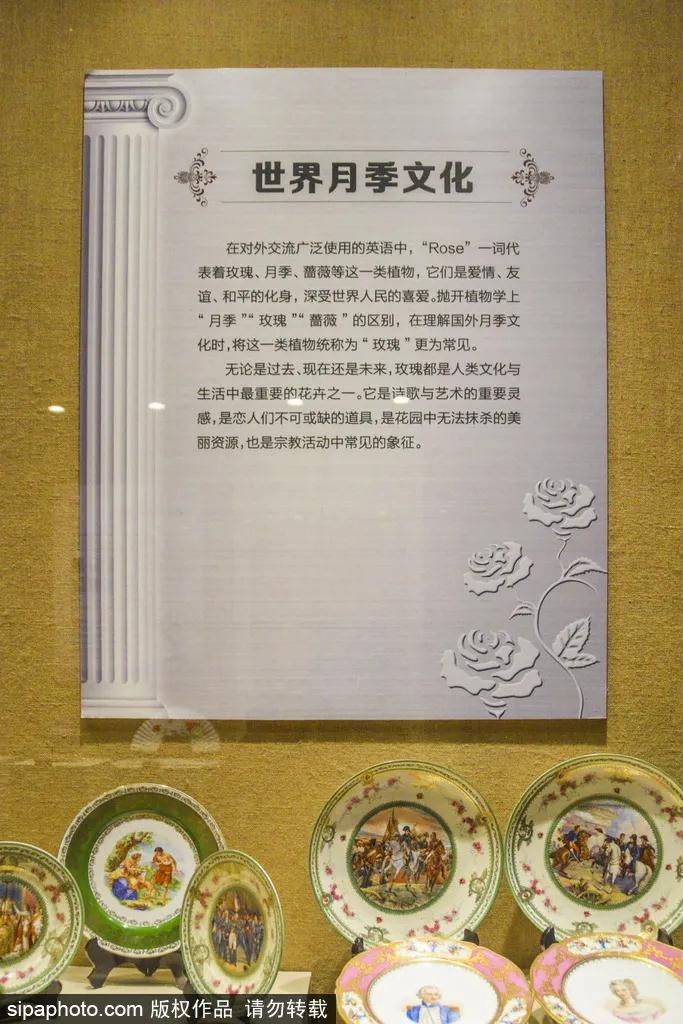 世界月季文化
在对外交流广泛使用的英语中，“Rose”一词代
表着玫瑰、月季、蔷薇等这一类植物，它们是爱情、友
谊、和平的化身，深受世界人民的喜爱。抛开植物学上
“月季”“玫瑰”“蔷薇”的区别，在理解国外月季文
化时，将这一类植物统称为“玫瑰”更为常见。
无论是过去、现在还是未来，玫瑰都是人类文化与
生活中最重要的花卉之一。它是诗歌与艺术的重要灵
感，是恋人们不可或缺的道具，是花园中无法抹杀的美
丽资源，也是宗教活动中常见的象征。
sipaphoto.com 版权作品 请勿转载